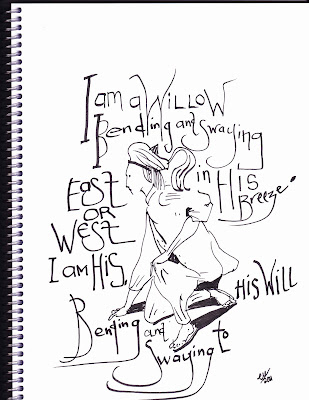 I am a WILLOW
Bending and Swaying
in HIS
Breeze
East
OR
WEST
I am HIS,
Bending and
Swaying to
HIS WILL